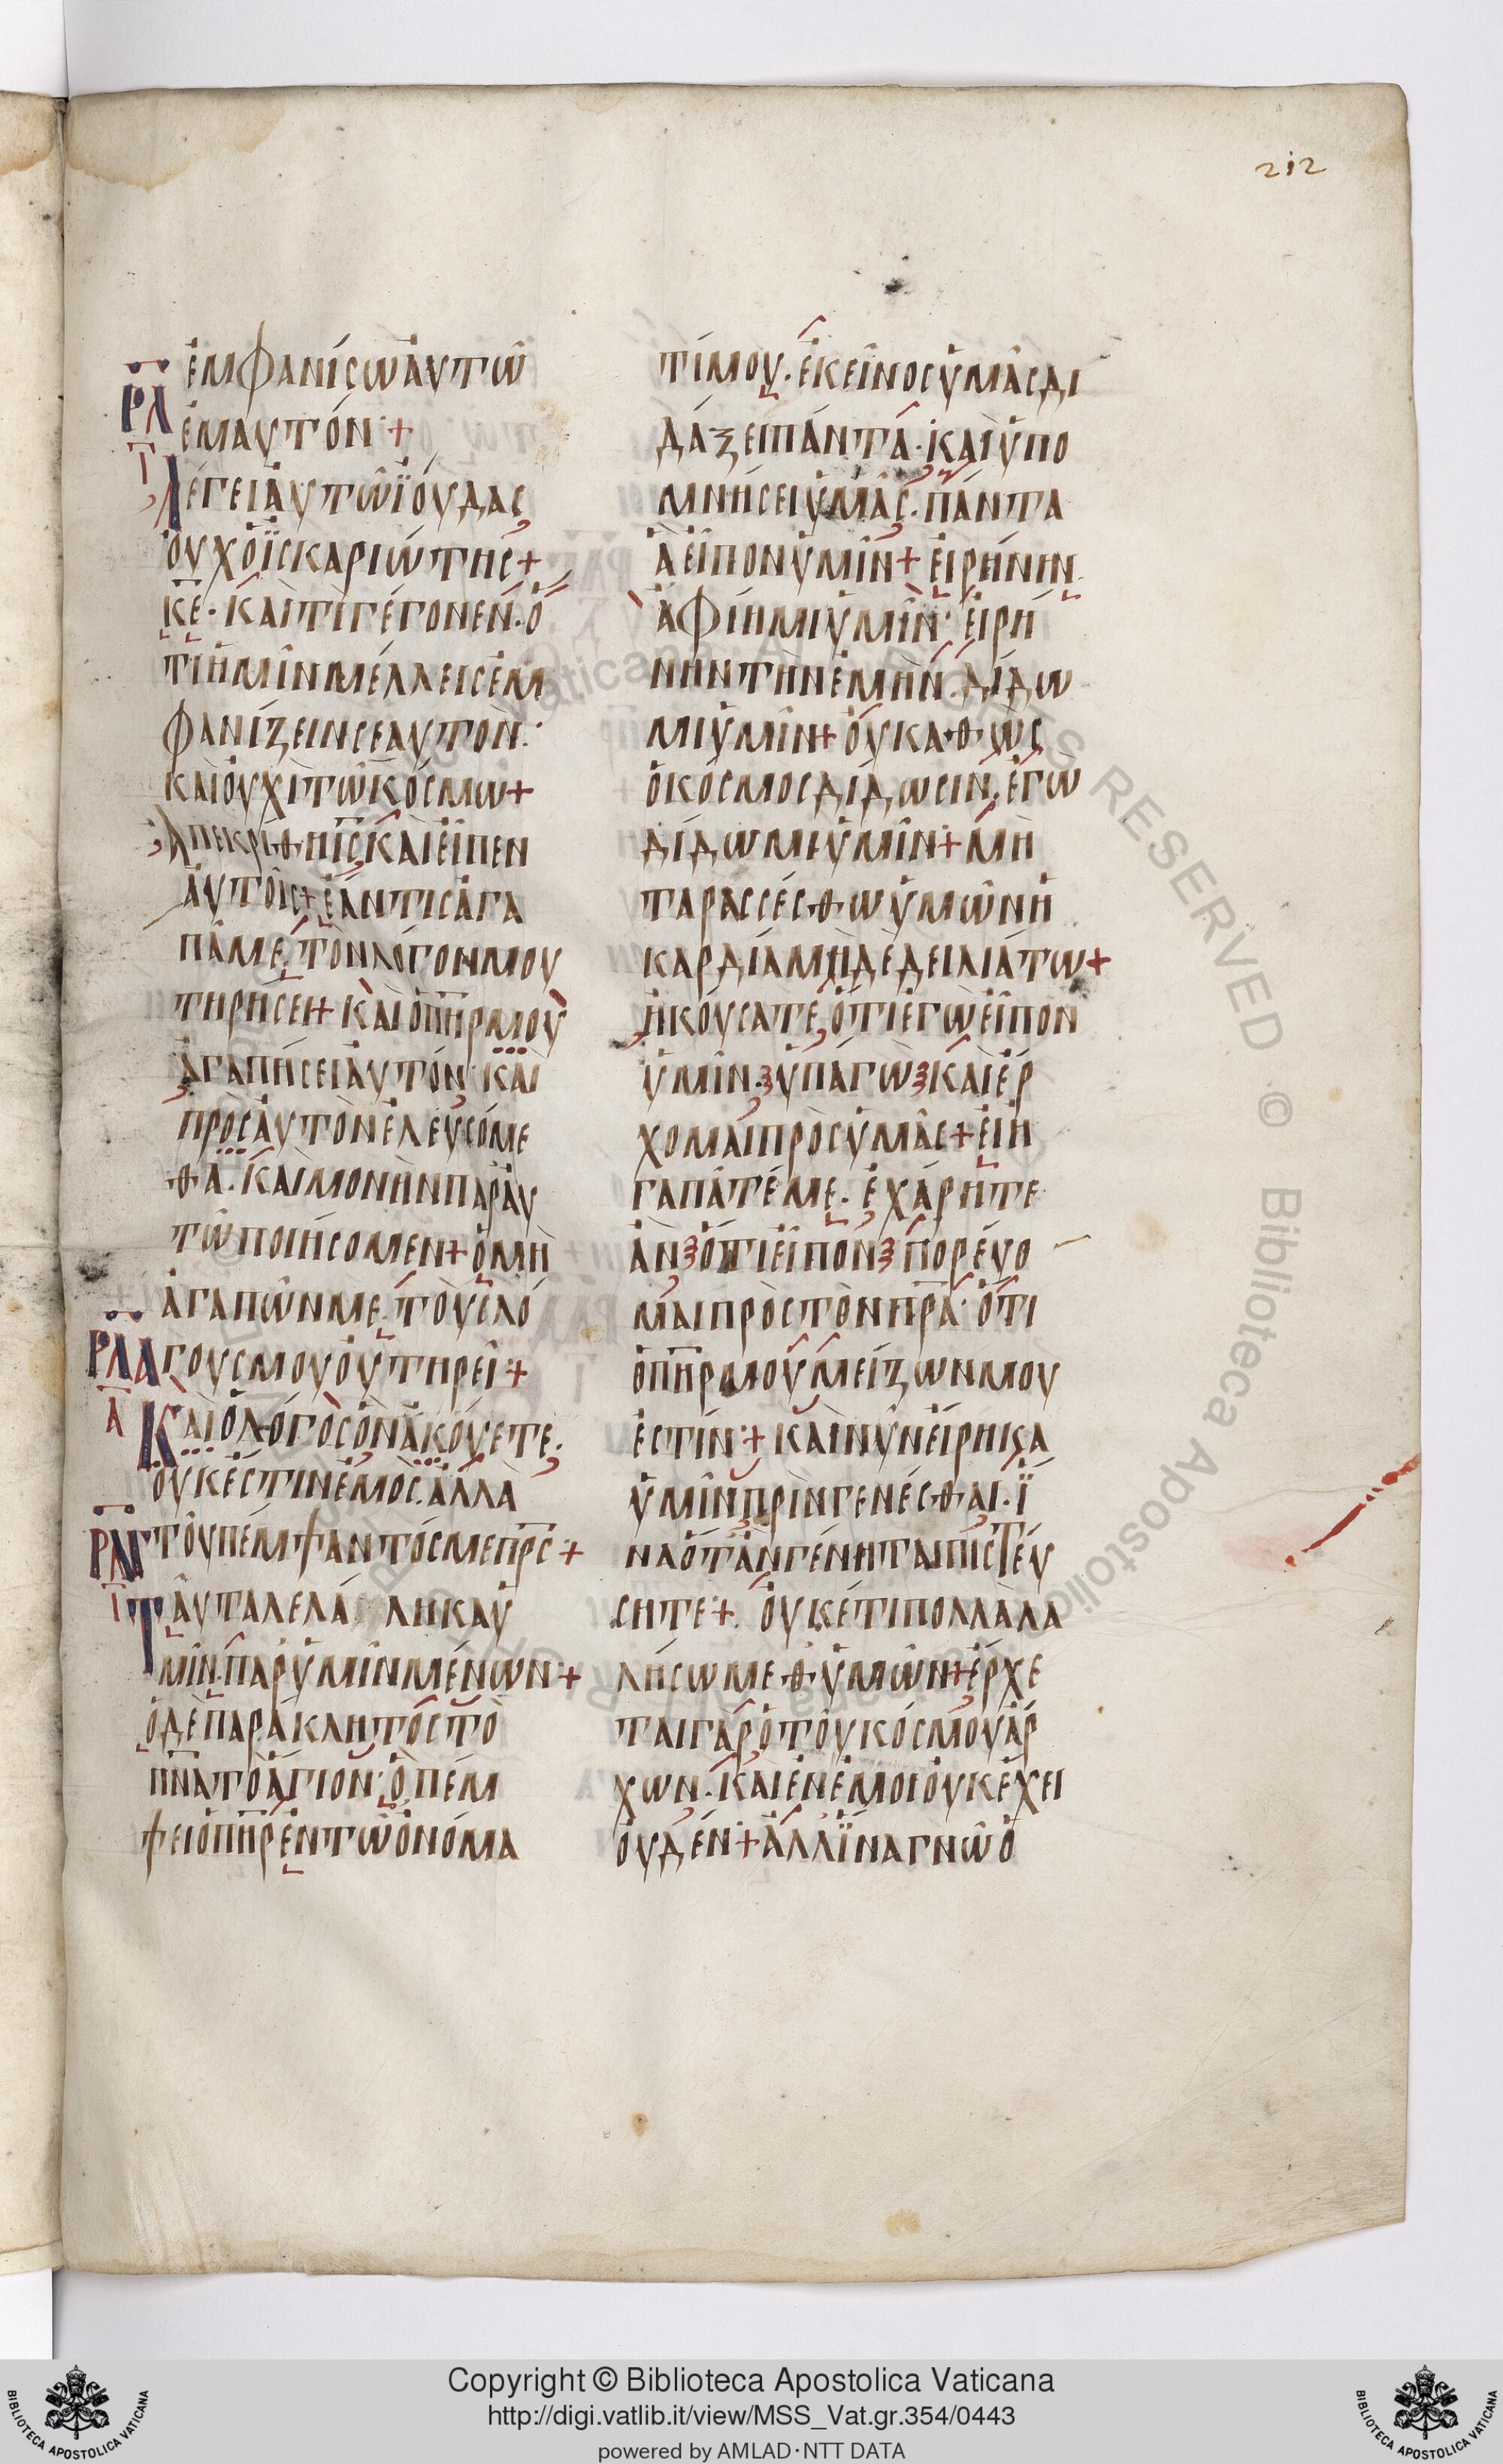 212
ἐμφανίσω ἀυτῶ
ἐμαυτόν +
ΡΛ
Γ
Λέγει ἀυτῶ ϊούδας
ὀυχ ὁ ϊσκαριώτης +
κε · καὶ τί γέγονεν · ὅ
τι ἡμῖν μέλλεις ἐμ
φανίζειν σεαυτὸν :
καὶ ὀυχὶ τῶ κόσμω +
Ἀπεκρίθη ις καὶ εἶπεν
ἀυτοῖς + ἐάν τις ἀγα
πᾶ με · τὸν λόγον μου
τηρήσει + καὶ ὁ πηρ μου
ἀγαπήσει ἀυτόν · καὶ
πρὸς ἀυτὸν ἐλευσόμε
θα · καὶ μονὴν παρ ἀυ
τῶ ποιήσομεν + ὁ μὴ
ἀγαπῶν με · τοὺς λό
ΡΛΑ
Α
γους μου ὀυ τηρεῖ +
Καὶ ὁ λόγος ὃν ἀκούετε ·
ὀυκ ἔστιν ἐμὸς · ἀλλὰ
τοῦ πέμψαντός με πρς +
ΡΛΒ
Ι
Ταῦτα λελάληκα ὑ
μῖν · παρ ὑμῖν μένων +
ὁ δὲ παράκλητος τὸ
πνα τὸ ἅγιον · ὃ πέμ
ψει ὁ πηρ ἐν τῶ ὀνόμα
τί μου · ἐκεῖνος ὑμᾶς δι
δάξει πάντα · καὶ ὑπο
μνήσει ὑμᾶς · πάντα
ἃ εἶπον ὑμῖν + εἰρήνην
ἀφίημι ὑμῖν · εἰρή
νην τὴν ἐμὴν · δίδω
μι ὑμῖν + ὀυ καθὼς
ὁ κόσμος δίδωσιν · ἐγὼ
δίδωμι ὑμῖν + μὴ
ταρασσέσθω ὑμῶν ἡ
καρδία μὴ δὲ δειλιάτω +
ἠκούσατε ὅτι ἐγὼ εἶπον
ὑμῖν · ὑπάγω καὶ ἔρ
χομαι πρὸς ὑμᾶς + εἰ ἠ
γαπᾶτέ με · ἐχάρητε
ἂν ὅτι εἶπον πορεύο
μαι πρὸς τὸν πρα · ὅτι
ὁ πηρ μου μείζων μου
ἐστίν + καὶ νῦν εἴρηκα
ὑμῖν πρὶν γενέσθαι · ἵ
να ὅταν γένηται πιστεύ
σητε + ὀυκέτι πολλὰ λα
λήσω μεθ ὑμῶν + ἔρχε
ται γὰρ ὁ τοῦ κόσμου ἄρ
χων · καὶ ἐν ἐμοὶ ὀυκ ἔχει
ὀυδέν + ἀλλ ἵνα γνῶ ὁ
Copyright © Biblioteca Apostolica Vaticana
http://digi.vatlib.it/view/MSS_Vat.gr.354/0443
powered by AMLAD·NTT DATA
BIBLIOTECA APOSTOLICA VATICANA
BIBLIOTECA APOSTOLICA VATICANA